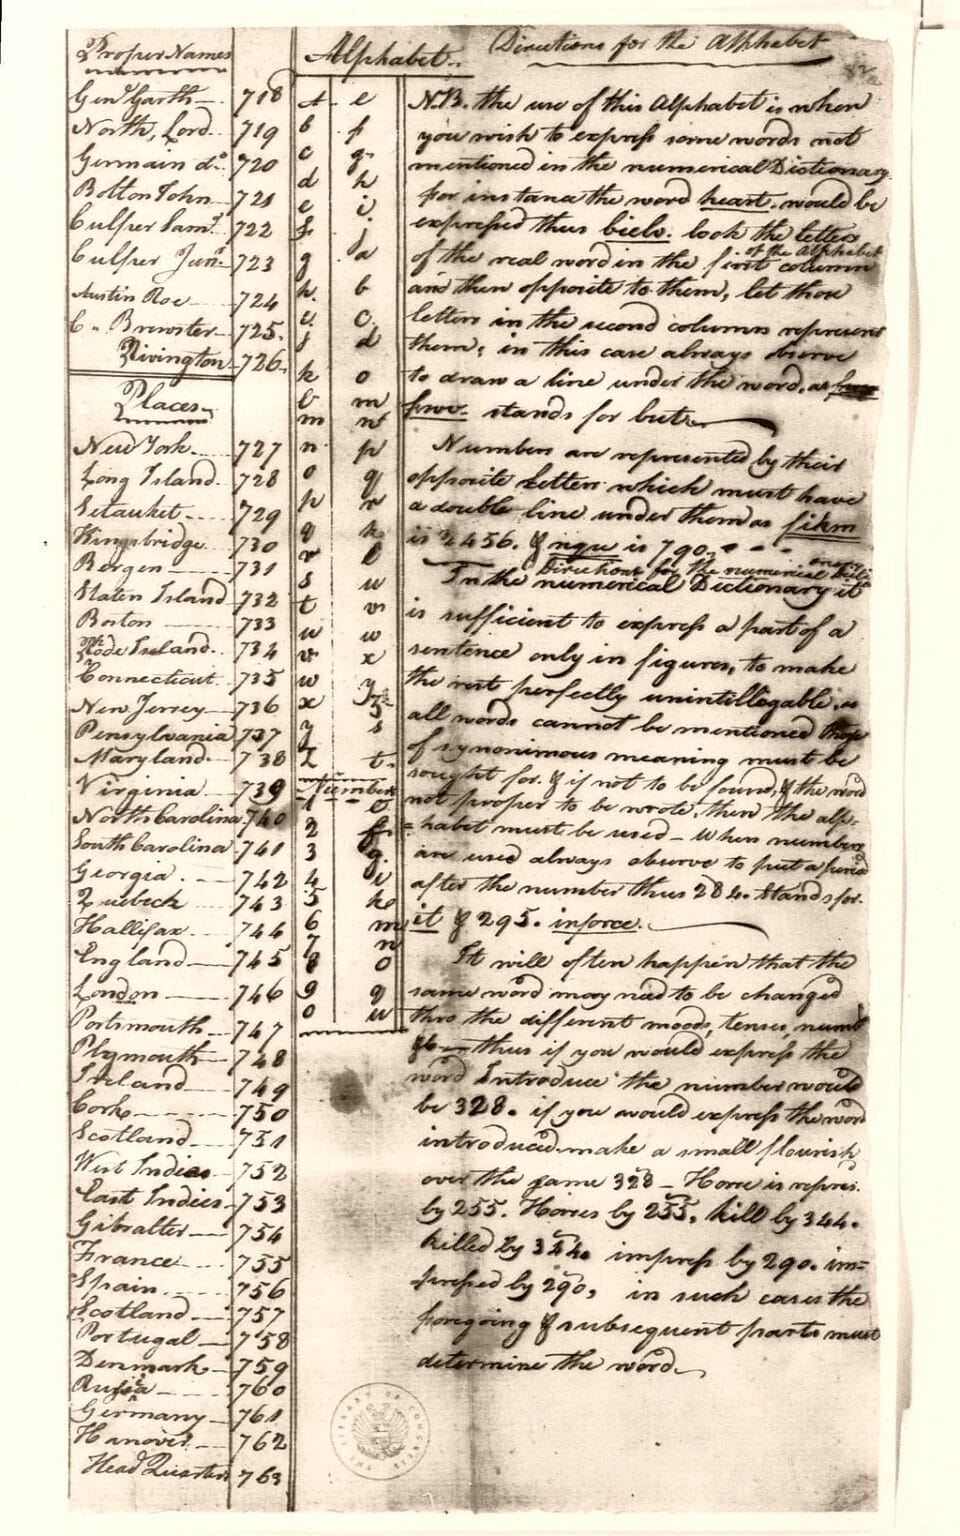 Proper Names
Genl. Garth 718
North, Lord 719
Germain do. 720
Bolton John 721
Culper Saml. 722
Culper Junr. 723
Austin Roe 724
C. Brewster 725.
Rivington 726.
Places
New York 727
Long Island 728
Setauket 729
Kingsbridge 730
Bergen 731
Staten Island 732
Boston 733
Rode Island 734
Connecticut 735
New Jersey 736
Pensylvania 737
Maryland 738
Virginia 739
North Carolina 740
South Carolina 741
Georgia 742
Quebeck 743
Hallifax 744
England 745
London 746
Portsmouth 747
Plymouth 748
Ireland 749
Cork 750
Scotland 751
West Indies 752
East Indies 753
Gibralter 754
France 755
Spain 756
Scotland 757
Portugal 758
Denmark 759
Russia 760
Germany 761
Hanover 762
Head Quarters 763
Alphabet
A e
b f
c g
d h
e i
f j
g a
h b
i c
j d
k o
l m
m n
n p
o q
p r
q k
r l
s u
t v
u w
v x
w y
x z
y s
z t
Numbers
1 e
2 f
3 g
4 i
5 k
6 m
7 n
8 o
9 q
0 u
Directions for the Alphabet
N.B. the use of this Alphabet is when
you wish to express some words not
mentioned in the numerical Dictionary
for instance the word heart. would be
expressed thus biels. look the letters
of the real word in the first column of the Alphabet
and then opposite to them, let those
letters in the second column represent
them; in this case always observe
to draw a line under the word, as
fwv. stands for but
Numbers are represented by their
opposite letters which must have
a double line under them as fikm
is 2456. & nqu is 790.
Directions for the numerical Dictionary
In the numerical Dictionary it
is sufficient to express a part of a
sentence only in figures, to make
the rest perfectly unintillegable, as
all words cannot be mentioned those
of synonimous meaning must be
sought for. & if not to be found, & the word
not proper to be wrote, then the alp-
habet must be used - When numbers
are used always observe to put a period
after the number thus 284. stands for
it & 295. inforce.
It will often happen that the
same word may need to be changed
thro the different moods, tenses, numb
&c thus if you would express the
word Introduce the number would
be 328. if you would express the word
introduced make a small flourish
over the same 328 - Horse is repres.
by 255. Horses by 255. kill by 344.
killed by 344. impress by 290. im=
pressed by 290, in such cases the
foregoing & subsequent parts must
determine the word
THE LIBRARY OF CONGRESS